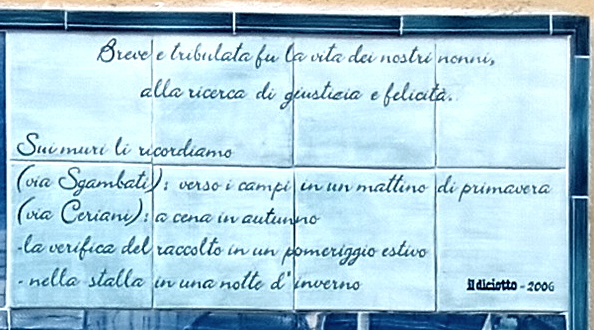 Breve e tribulata fu la vita dei nostri nonni,
alla ricerca di giustizia e felicità.
Sui muri li ricordiamo
(via Sgambati): verso i campi in un mattino di primavera
(via Ceriani): a cena in autunno
-la verifica del raccolto in un pomeriggio estivo
- nella stalla in una notte d'inverno
il diciotto - 2006